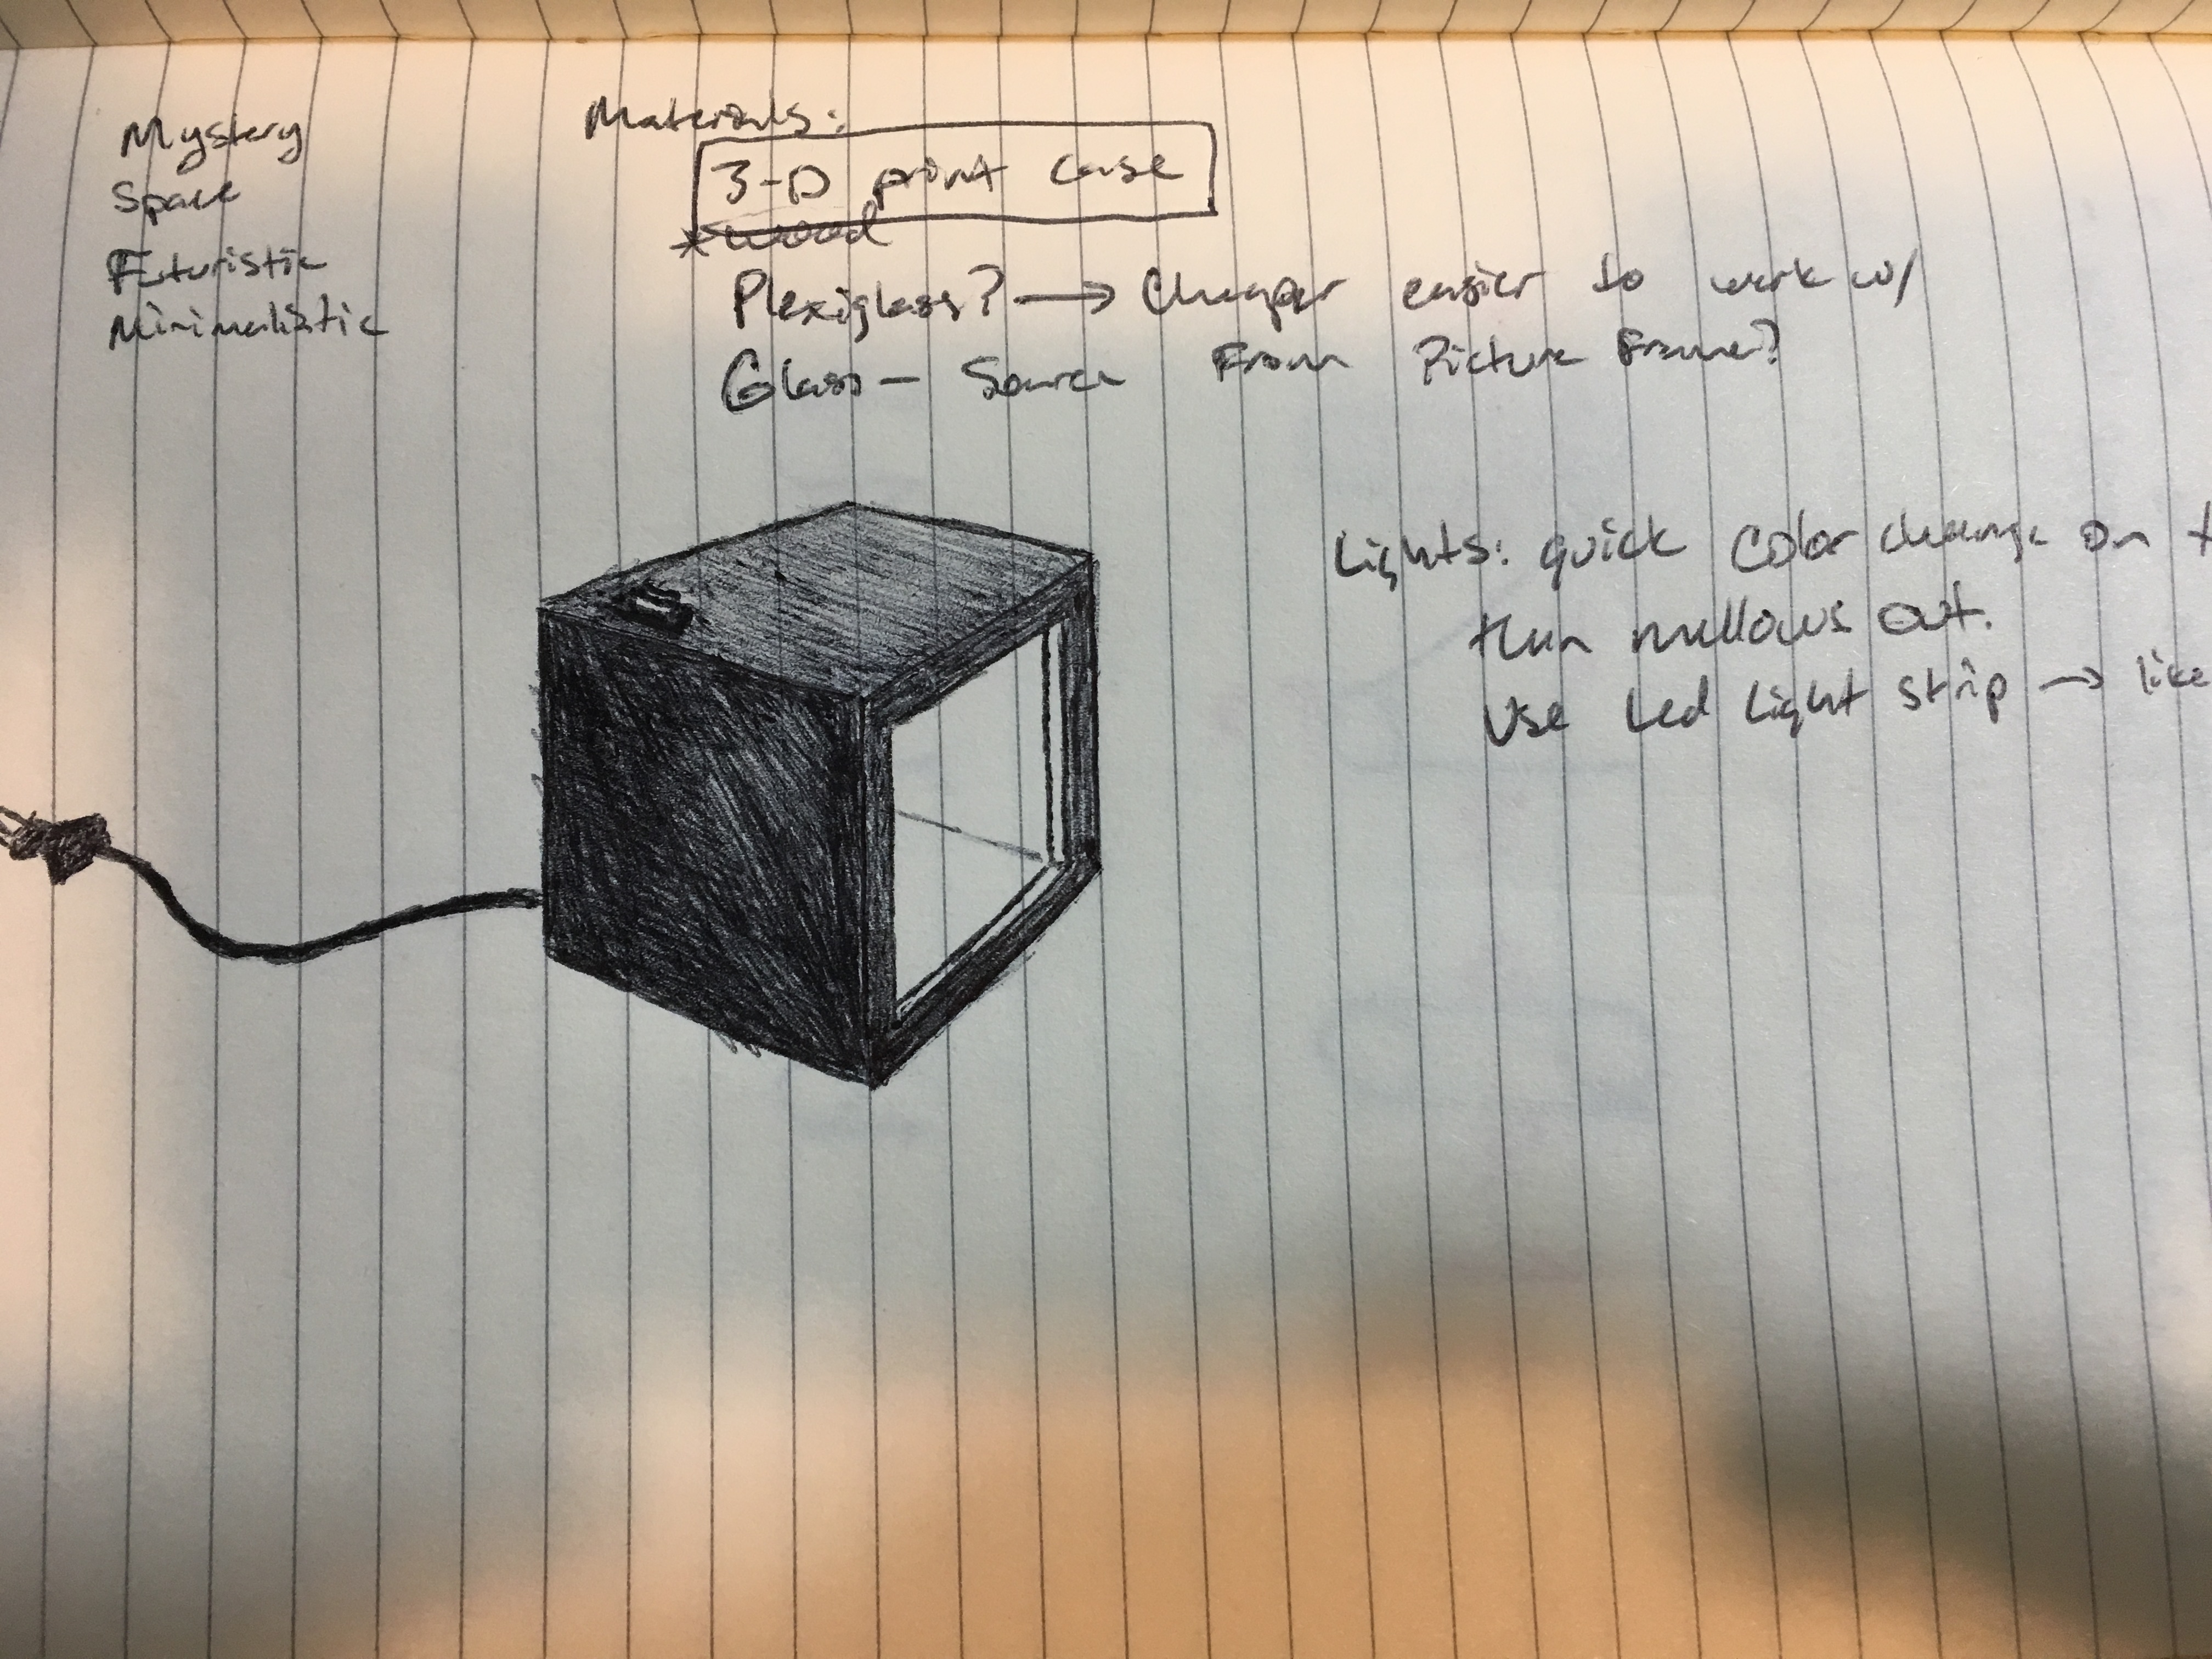 Mystery
Space
Futuristic
Minimalistic
Materials:
3-D print case
*wood
Plexiglass? → Cheaper easier to work w/
Glass - Source From Picture Frame?
Lights: quick color change on t
then mellows out.
Use Led Light strip → like